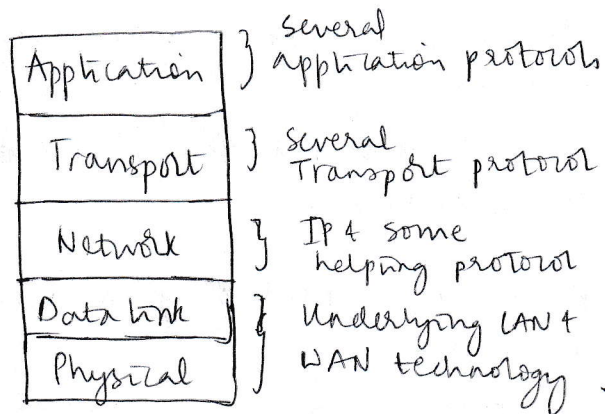 Application } several
application protocols
Transport } several
Transport protocol
Network } IP & some
helping protocol
Data link } Underlying LAN &
Physical WAN technology.